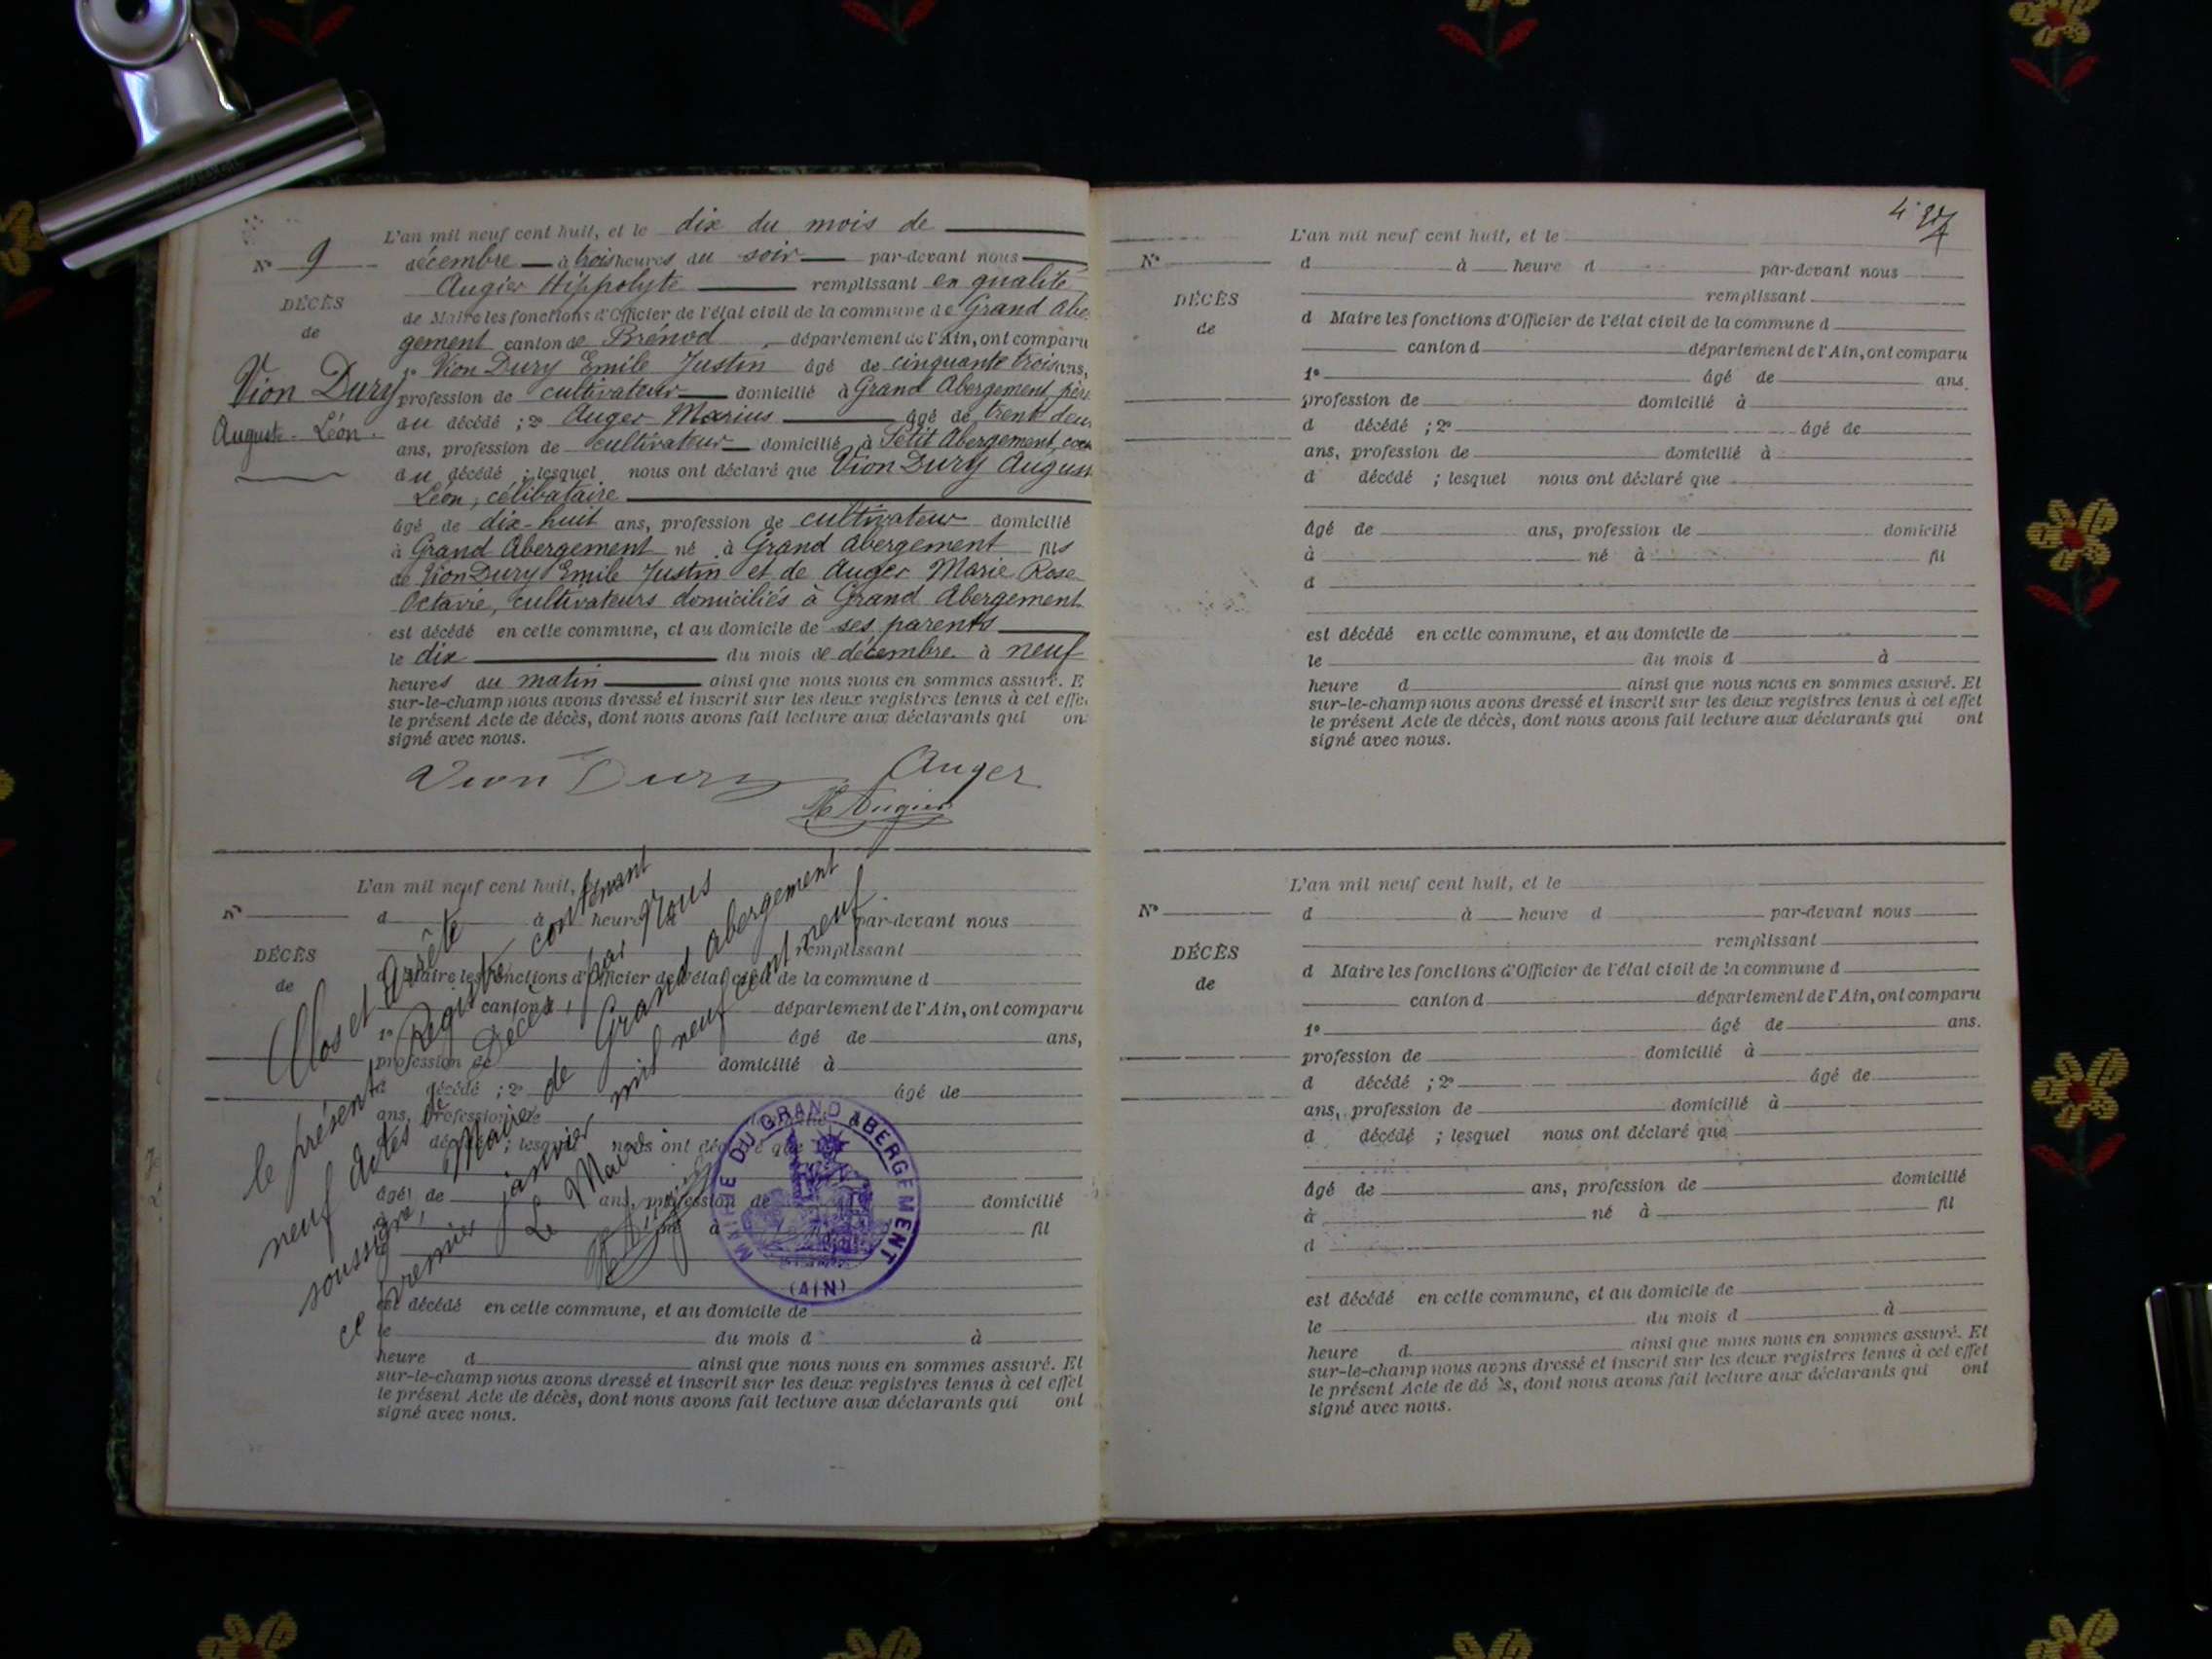 L'an mil neuf cent huit, et le dix du mois de
N° 9 décembre à trois heures du soir par-devant nous
Augier Hippolyte remplissant en qualité
DÉCÈS
de Maire les fonctions d'Officier de l'état civil de la commune de Grand Abe
de
gement canton de Brénod département de l'Ain, ont comparu
1° Vion Dury Emile Justin âgé de cinquante trois ans,
Vion Dury
profession de cultivateur domicilié à Grand Abergement, père
du décédé ; 2° Auger Marius âgé de trente deux
Auguste Léon.
ans, profession de cultivateur domicilié à Petit Abergement,
du décédé ; lesquel nous ont déclaré que Vion Dury August
Léon, célibataire
âgé de dix-huit ans, profession de cultivateur domicilié
à Grand Abergement né à Grand Abergement fils
de Vion Dury Emile Justin et de Auger Marie Rose
Octavie, cultivateurs domiciliés à Grand Abergement
est décédé en cette commune, et au domicile de ses parents
le dix du mois de décembre à neuf
heures du matin ainsi que nous nous en sommes assuré. E
sur-le-champ nous avons dressé et inscrit sur les deux registres tenus à cet effe
le présent Acte de décès, dont nous avons fait lecture aux déclarants qui on
signé avec nous.
Vion Dury Auger
H Augier
L'an mil neuf cent huit,
N° d à heure par-devant nous
remplissant
DÉCÈS
de
d Maire les fonctions d'Officier de l'état civil de la commune d
canton d département de l'Ain, ont comparu
1° âgé de ans,
profession de domicilié à
d décédé ; 2° âgé de
ans, profession de domicilié à
d décédé ; lesquel nous ont déclaré que
âgé de ans, profession de domicilié
à né à fil
est décédé en cette commune, et au domicile de
le du mois d à
heure d ainsi que nous nous en sommes assuré. Et
sur-le-champ nous avons dressé et inscrit sur les deux registres tenus à cet effet
le présent Acte de décès, dont nous avons fait lecture aux déclarants qui ont
signé avec nous.
Clos et Arrêté
le présent Registre contenant
neuf Actes de Décès, par Nous
soussigné, Maire de Grand Abergement
ce premier janvier mil neuf cent neuf.
Le Maire
MAIRIE DU GRAND ABERGEMENT
(AIN)
L'an mil neuf cent huit, et le
N° d à heure d par-devant nous
remplissant
DÉCÈS
d Maire les fonctions d'Officier de l'état civil de la commune d
de
canton d département de l'Ain, ont comparu
1° âgé de ans.
profession de domicilié à
d décédé ; 2° âgé de
ans, profession de domicilié à
d décédé ; lesquel nous ont déclaré que
âgé de ans, profession de domicilié
à né à fil
d
est décédé en cette commune, et au domicile de
le du mois d à
heure d ainsi que nous nous en sommes assuré. Et
sur-le-champ nous avons dressé et inscrit sur les deux registres tenus à cet effet
le présent Acte de décès, dont nous avons fait lecture aux déclarants qui ont
signé avec nous.
L'an mil neuf cent huit, et le
N° d à heure d par-devant nous
remplissant
DÉCÈS
d Maire les fonctions d'Officier de l'état civil de la commune d
de
canton d département de l'Ain, ont comparu
1° âgé de ans.
profession de domicilié à
d décédé ; 2° âgé de
ans, profession de domicilié à
d décédé ; lesquel nous ont déclaré que
âgé de ans, profession de domicilié
à né à fil
d
est décédé en cette commune, et au domicile de
le du mois d à
heure d ainsi que nous nous en sommes assuré. Et
sur-le-champ nous avons dressé et inscrit sur les deux registres tenus à cet effet
le présent Acte de dé s, dont nous avons fait lecture aux déclarants qui ont
signé avec nous.